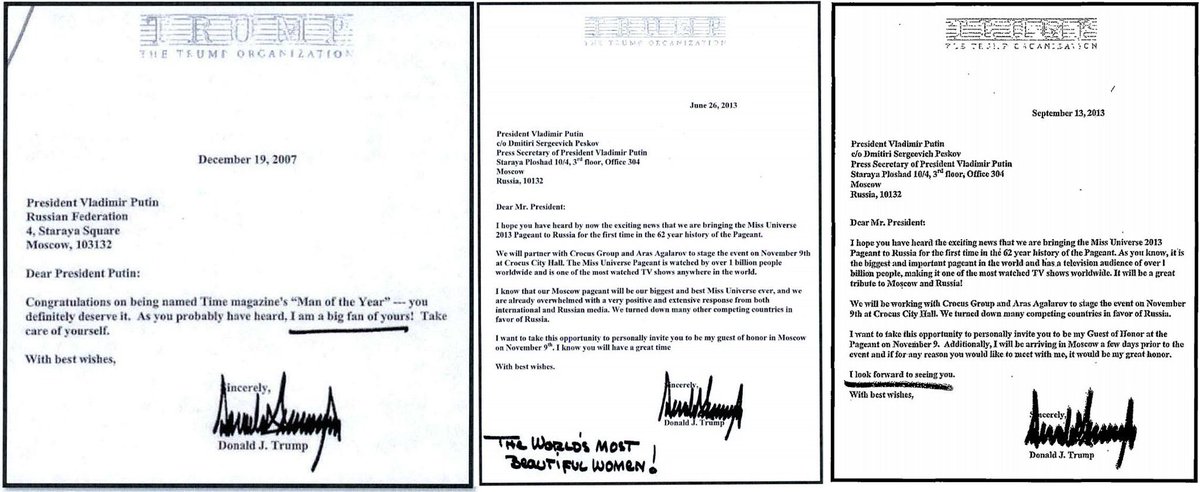 TRUMP
THE TRUMP ORGANIZATION
December 19, 2007
President Vladimir Putin
Russian Federation
4, Staraya Square
Moscow, 103132
Dear President Putin:
Congratulations on being named Time magazine's “Man of the Year” --- you
definitely deserve it. As you probably have heard, I am a big fan of yours! Take
care of yourself.
With best wishes,
Sincerely,
Donald J. Trump
TRUMP
THE TRUMP ORGANIZATION
June 26, 2013
President Vladimir Putin
c/o Dmitiri Sergeevich Peskov
Press Secretary of President Vladimir Putin
Staraya Ploshad 10/4, 3rd floor, Office 304
Moscow
Russia, 10132
Dear Mr. President:
I hope you have heard by now the exciting news that we are bringing the Miss Universe
2013 Pageant to Russia for the first time in the 62 year history of the Pageant.
We will partner with Crocus Group and Aras Agalarov to stage the event on November 9th
at Crocus City Hall. The Miss Universe Pageant is watched by over 1 billion people
worldwide and is one of the most watched TV shows anywhere in the world.
I know that our Moscow pageant will be our biggest and best Miss Universe ever, and we
are already overwhelmed with a very positive and extensive response from both
international and Russian media. We turned down many other competing countries in
favor of Russia.
I want to take this opportunity to personally invite you to be my guest of honor in Moscow
on November 9th. I know you will have a great time
With best wishes.
Sincerely,
Donald J. Trump
THE WORLD'S MOST
BEAUTIFUL WOMEN!
TRUMP
THE TRUMP ORGANIZATION
September 13, 2013
President Vladimir Putin
c/o Dmitiri Sergeevich Peskov
Press Secretary of President Vladimir Putin
Staraya Ploshad 10/4, 3rd floor, Office 304
Moscow
Russia, 10132
Dear Mr. President:
I hope you have heard the exciting news that we are bringing the Miss Universe 2013
Pageant to Russia for the first time in the 62 year history of the Pageant. As you know, it is
the biggest and important pageant in the world and has a television audience of over 1
billion people, making it one of the most watched TV shows worldwide. It will be a great
tribute to Moscow and Russia!
We will be working with Crocus Group and Aras Agalarov to stage the event on November
9th at Crocus City Hall. We turned down many competing countries in favor of Russia.
I want to take this opportunity to personally invite you to be my Guest of Honor at the
Pageant on November 9. Additionally, I will be arriving in Moscow a few days prior to the
event and if for any reason you would like to meet with me, it would be my great honor.
I look forward to seeing you.
With best wishes,
Sincerely,
Donald J. Trump